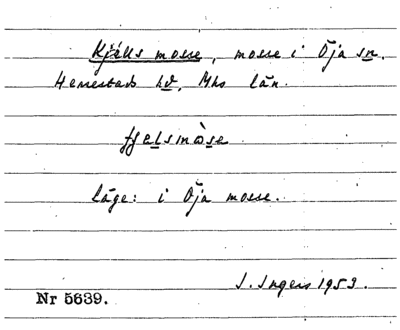 Kjälls mosse, mosse i Öja sn.
Herrestads hd, Mhs län.
läge: i Öja mosse.
I. Ingers 1953.
Nr 5639.